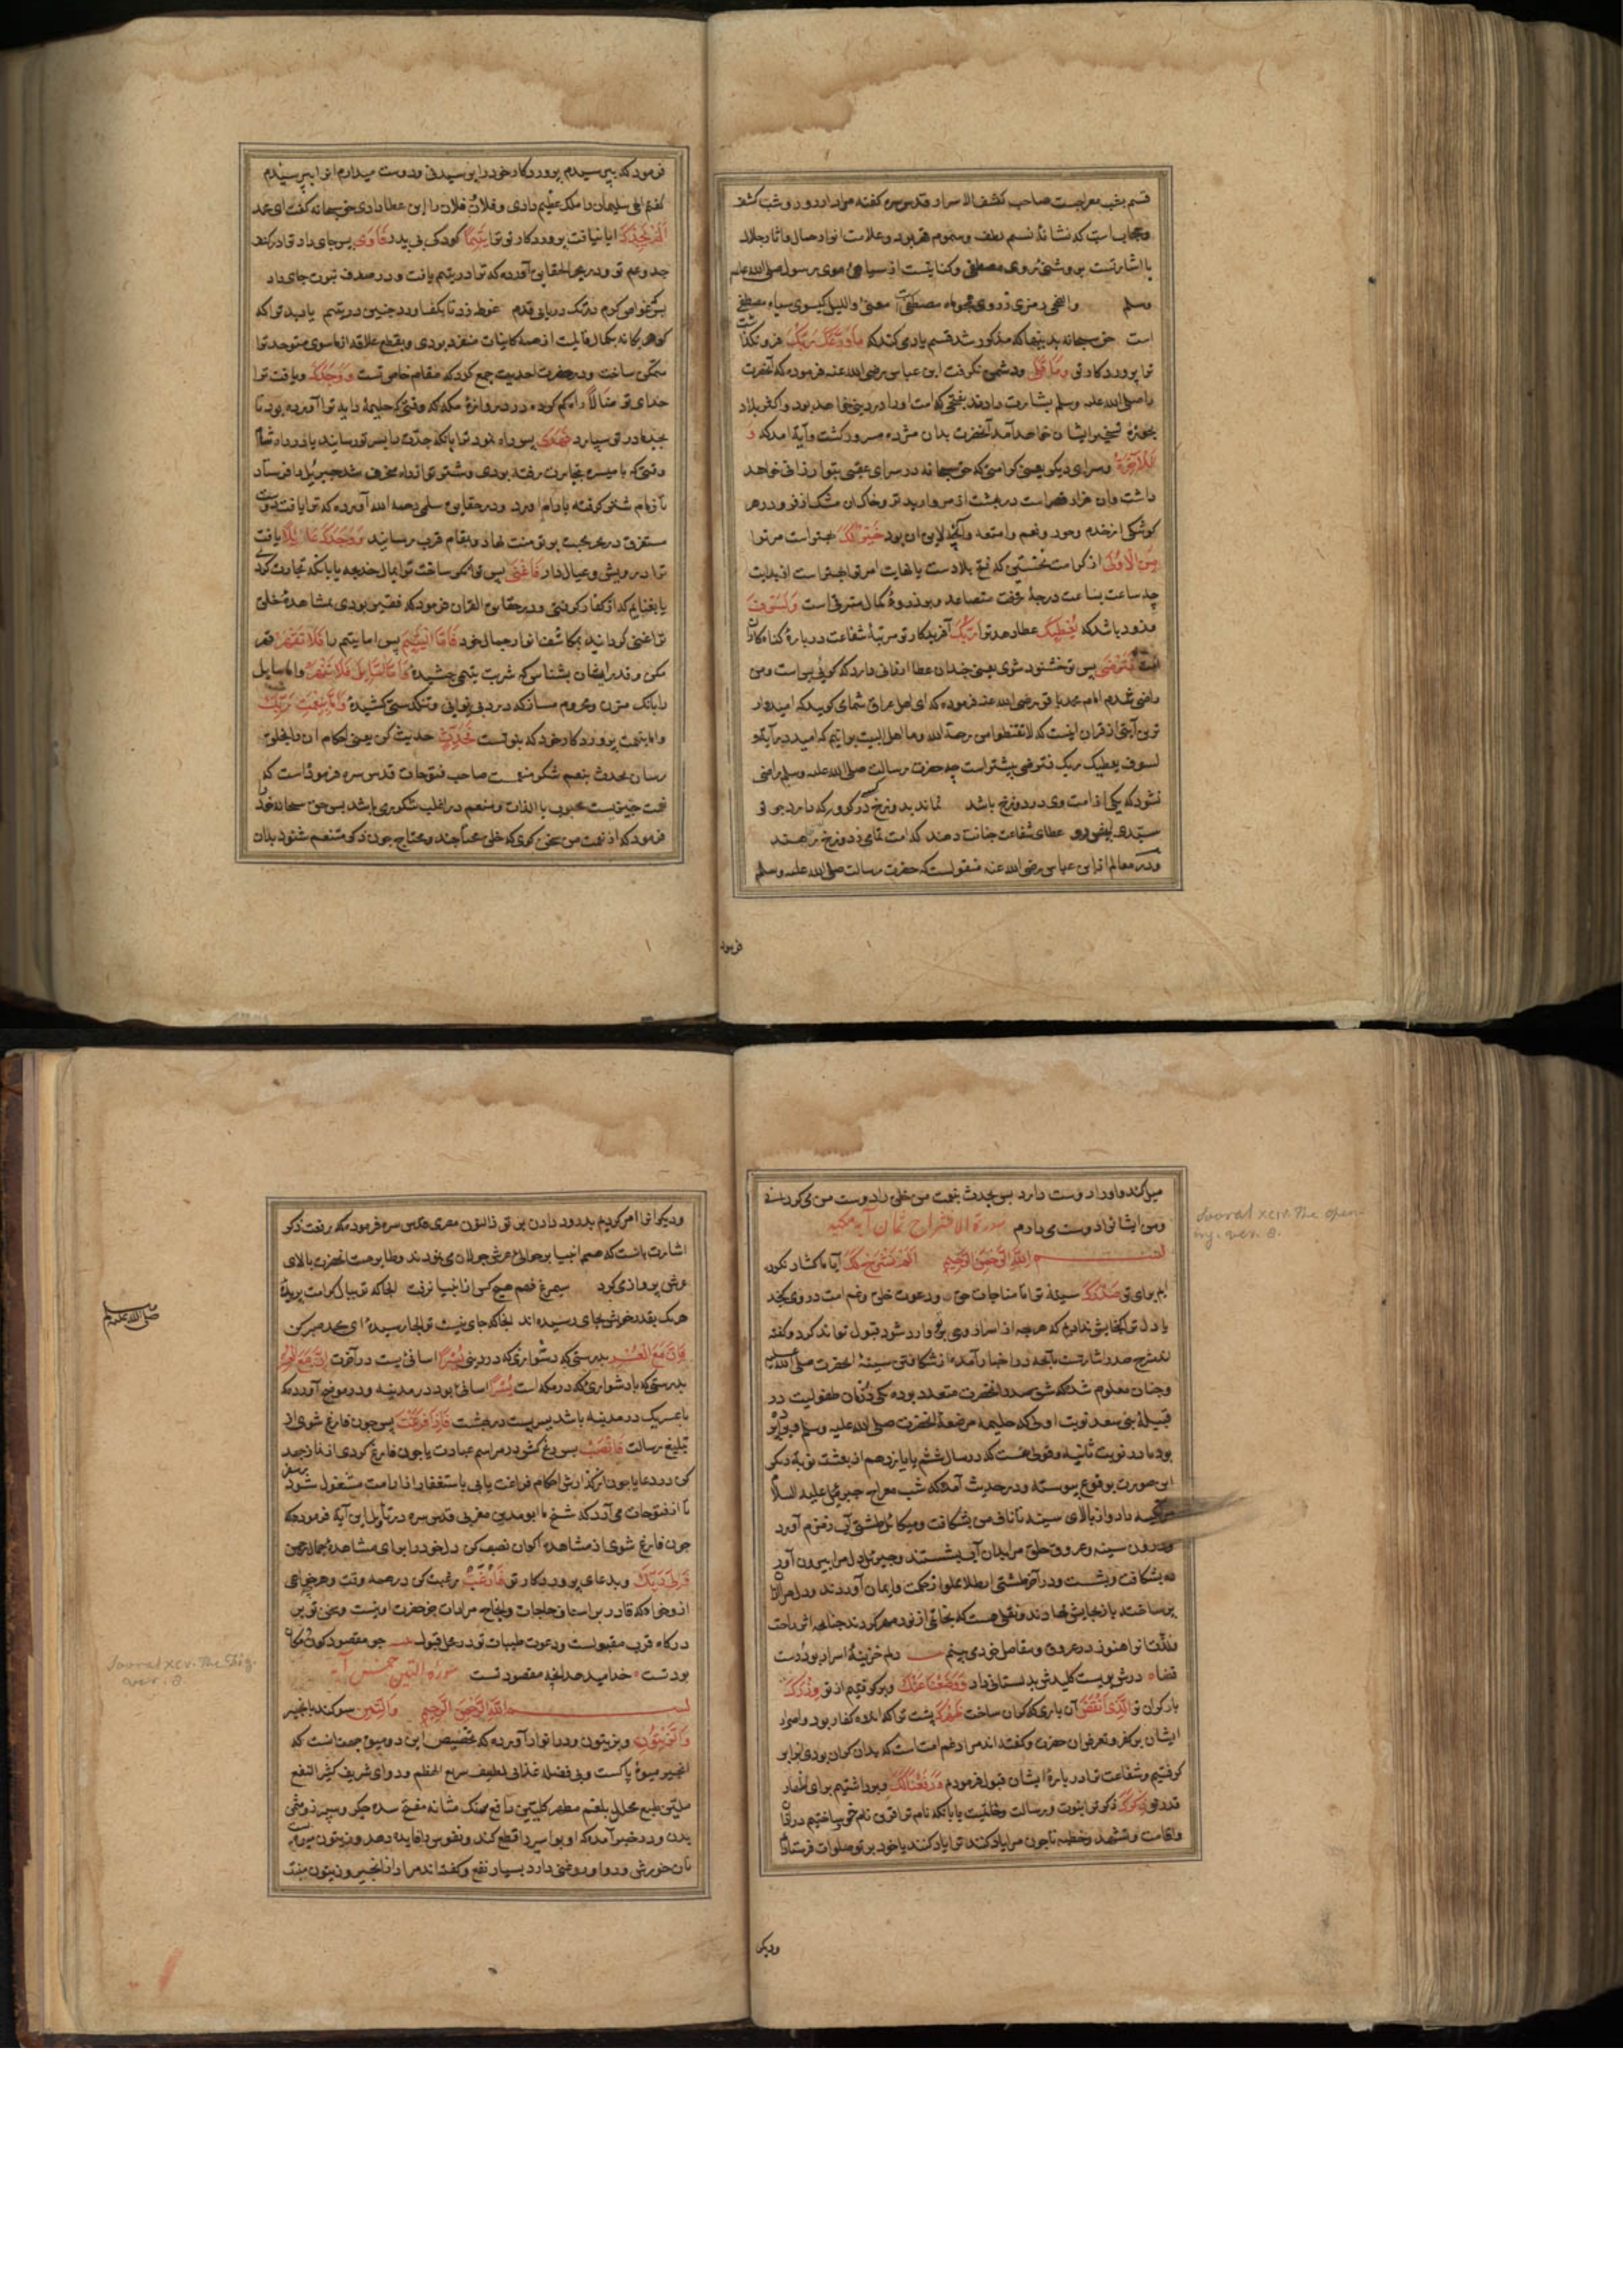 قسم بشب معراجست صاحب کشف الاسرار قدس سره گفته مراد از روز و شب کشف
و حجاب است که نشانهٔ نسیم لطف و سموم قهر بود و علامت انوار جمال و آثار جلال
یا اشارتست بروشنی روی مصطفی و کنایتست از سیاهی موی رسول صلی الله علیه
وسلم والضحی رمزی ز روی همچو ماه مصطفی معنی واللیل گیسوی سیاه مصطفی
است حق سبحانه بدینها که مذکور شد قسم یاد می کند که مَا وَدَّعَكَ رَبُّكَ فرو نگذاشت
ترا پروردگار تو وَمَا قَلَى و دشمن نگرفت ابن عباس رضی الله عنه فرموده که آنحضرت
را صلی الله علیه وسلم بشارت دادند بفتحی که امت او را در دین خواهد بود و اکثر بلاد
بحوزهٔ تسخیر ایشان خواهد آمد آنحضرت بدان مژده مسرور گشت و آیة آمد که وَ
لَلْآخِرَةُ و سرای دیگر یعنی کرامتی که حق سبحانه در سرای عقبی بتو ارزانی خواهد
داشت و ان هزار قصر است در بهشت از مروارید تر و خاک ان مشک اذفر و در هر
کوشکی از خدم و حور و نعیم و امتعه و آنچه لایق ان بود خَيْرٌ لَكَ بهتر است مر ترا
مِنَ الْأُولَى از کرامت نخستین که فتح بلادست یا نهایت امر تو بهتر است از بدایت
چه ساعت بساعت درجهٔ رفعت متصاعد و بر ذروهٔ کمال مترقی است وَلَسَوْفَ
و زود باشد که يُعْطِيكَ عطا دهد ترا رَبُّكَ آفریدگار تو مرتبهٔ شفاعت در بارهٔ گناهکاران
امت فَتَرْضَى پس تو خشنود شوی یعنی چندان عطا ارزانی دارد که گویی بس است و من
راضی شدم امام محمد باقر رضی الله عنه فرموده که ای اهل عراق شما می گویید که امیدوار
ترین آیتی از قران اینست که لا تقنطوا من رحمة الله و ما اهل البیت برانیم که امید در آیة و
لسوف یعطیک ربک فترضی بیشتر است چه حضرت رسالت صلی الله علیه وسلم راضی
نشود که یکی از امت وی در دوزخ باشد نماند بدوزخ کسی در گرو که دارد چو تو
سیدی پیش رو عطای شفاعت چنانت دهند که امت تمامی ز دوزخ رهند
و در معالم از ابن عباس رضی الله عنه منقولست که حضرت رسالت صلی الله علیه وسلم
فرمود
فرمود که بپرسیدم پروردگار خود را پرسیدنی و دوست میدارم انرا بپرسیدم
گفتم الهی سلیمان را ملک عظیم دادی و فلان فلان را این عطا دادی حق سبحانه گفت ای محمد
أَلَمْ يَجِدْكَ ایا نیافت پروردگار تو ترا يَتِيمًا کودکی بی پدر فَآوَى پس جای داد ترا در کنف
جد و عم تو و در بحر الحقایق آورده که ترا در یتیم یافت و در صدف نبوت جای داد
گوهر یگانه بکمال قابلیت از همهٔ کاینات منفرد بودی و بقطع علاقه از ماسوی متوحد ترا
متمکن ساخت و در حضرت احدیت جمع کرد که مقام خاص تست وَوَجَدَكَ و یافت ترا
خدای تو ضَالًّا راه گم کرده در دروازهٔ مکه که وقتی که حلیمه دایه ترا آورده بود تا
بجد و مادر تو سپارد فَهَدَى پس راه نمود ترا بانکه جدت را بسر تو رسانید یا در راه شام
وقتی که با میسره بتجارت رفته بودی و شتر تو از راه منحرف شد جبرئیل را فرستاد
تا زمام شتر گرفته باراه آورد و در حقایق سلمی رحمه الله آورده که ترا یافت دوست
مستغرق در بحر محبت بر تو منت نهاد و بمقام قرب رسانید وَوَجَدَكَ عَائِلًا و یافت
ترا درویش و عیال دار فَأَغْنَى پس توانگر ساخت ترا بمال خدیجه یا بانکه تجارت کردی
یا بغنایم که از کفار گرفتی و در حقایق القران فرمود که فقیر بودی بمشاهدهٔ خلق
ترا غنی گردانید بمکاشف انوار جمال خود فَأَمَّا الْيَتِيمَ پس اما یتیم را فَلَا تَقْهَرْ قهر
مکن و قدر ایشان بشناس که شربت یتیمی چشیده وَأَمَّا السَّائِلَ فَلَا تَنْهَرْ و اما سایل
را بانک مزن و محروم مساز که درد بی نوایی و تنگدستی کشیدهٔ وَأَمَّا بِنِعْمَةِ رَبِّكَ
و اما بنعمت پروردگار خود که بتوست فَحَدِّثْ حدیث کن یعنی احکام ان را بخلق
رسان تحدث بنعم شکر منعمست صاحب فتوحات قدس سره فرموده است که
نعمت چیزیست محبوب بالذات و منعم در اغلب شکوری باشد پس حق سبحانه خود را
فرمود که از نعمت من سخن گوی که خلق محتاجند و محتاج چون ذکر منعم شنود بدان
میل کند و او را دوست دارد پس بحدیث نعمت من خلق را دوست من می گردانی
و من ایشانرا دوست می دارم سورة الانشراح ثمان آیه مکیه
بسم الله الرحمن الرحیم أَلَمْ نَشْرَحْ لَكَ آیا ما گشاده نکرده
ایم برای تو صَدْرَكَ سینهٔ تو تا مناجات حق و دعوت خلق و غم امت در وی گنجد
یا دل ترا گنجایشی ندادیم که هر چه از اسرار وحی بر تو وارد شود قبول تواند کرد و گفته
وچنان معلوم شده که شق صدر آنحضرت متعدد بوده یکی در زمان طفولیت در
قبیلهٔ بنی سعد نوبت اولی که حلیمه مرضعهٔ آنحضرت صلی الله علیه وسلم
این صورت بوقوع پیوسته و در حدیث آمده که شب معراج جبرئیل علیه السلام
تکیه داد و از بالای سینه تا ناف من بشکافت و میکائیل طشتی آب زمزم آورد
و درون سینه و عروق حلق مرا بدان آب بشستند و جبرئیل دل مرا بیرون آورد
و بشکافت و بشست و در آخر طشتی از طلا مملو از حکمت و ایمان آوردند و دل مرا از ان
پر ساخته باز بجایش نهادند و نقلی هست که بخاتمی از نور مهر کردند چنانچه اثر راحت
و لذت انرا هنوز در عروق و مفاصل خود می یابم دلم خزینهٔ اسرار بود و دست
قضا درش ببست و کلیدش بدلستانی داد وَوَضَعْنَا عَنْكَ و برگرفتیم از تو وِزْرَكَ
بار گران تو الَّذِي أَنْقَضَ آن باری که گران ساخت ظَهْرَكَ پشت ترا که اندوه کفار بود و اصرار
ایشان بر کفر و تعرض ان حضرت و گفته اند مراد غم امت است که بدان گران بودی ترا بر
گرفتیم و شفاعت ترا در بارهٔ ایشان قبول فرمودیم وَرَفَعْنَا لَكَ و برداشتیم برای اظهار
قدر تو ذِكْرَكَ ذکر ترا بنبوت و رسالت و خاتمیت یا بانکه نام ترا قرین نام خود ساختیم در اذان
و اقامت و تشهد و خطبه تا چون مرا یاد کنند ترا یاد کنند یا خود بر تو صلوات فرستادم
ودیگر
Soorat xciv. The Open-
ing. ver. 8.
ودیگرانرا امر کردیم بدرود دادن بر تو ذالنون مصری قدس سره فرموده که رفعت ذکر
اشارت بانست که همم انبیا بر حوالی عرش جولان می نمودند و طایر همت آنحضرت بالای
عرش پرواز می کرد سیمرغ فهم هیچ کس از انبیا نرفت انجا که تو ببال کرامت پریدهٔ
هر یک بقدر خویش بجایی رسیده اند انجا که جای نیست تو انجا رسیدهٔ ای محمد صبر کن
فَإِنَّ مَعَ الْعُسْرِ بدرستی که دشواری که در دنیی يُسْرًا اسانی یست در آخرت إِنَّ مَعَ الْعُسْرِ
بدرستی که با دشواری که در مکه است يُسْرًا اسانی بود در مدینه و در موضح آورده که
با عسر یک در مدینه باشد یسر یست در بهشت فَإِذَا فَرَغْتَ پس چون فارغ شوی از
تبلیغ رسالت فَانْصَبْ پس رنج کش در مراسم عبادت یا چون فارغ گردی از نماز جهد
کن در دعا یا چون از گذارش احکام فراغت یابی باستغفار از امت مشغول شو در
تا از فتوحات می آرد که شیخ ما ابو مدین مغربی قدس سره در تاویل این آیه فرموده که
چون فارغ شوی از مشاهدهٔ اکوان نصب کن دل خود را برای مشاهدهٔ جمال رحمن
وَإِلَى رَبِّكَ و بدعای پروردگار تو فَارْغَبْ رغبت کن در همه وقت و هر چه خواهی
از و خواه که قادر بر اسعاف حاجات و انجاح مرادات جز حضرت او نیست و سخن تو بر
درگاه قرب مقبولست و دعوت طیبات تو در محل قبول چو مقصود کون و مکان
بود تست خدا میدهد انچه مقصود تست سورة التین خمس آیه
بسم الله الرحمن الرحیم وَالتِّينِ سوگند بانجیر
وَالزَّيْتُونِ و بزیتون و در انوار آورده که تخصیص این دو میوه بجهت انست که
انجیر میوهٔ پاکست و بی فضله غذایی لطیف سریع الهضم و دوای شریف کثیر النفع
ملین طبع محلل بلغم مطهر کلیتین دافع رمل مثانه مفتح سده جگر و سپرز و مسمن
بدن و در خبر آمده که او بواسیر را قطع کند و نقرس را فایده دهد و زیتون میوه است
نان خورش و دوا و روغنی دارد بسیار نفع و گفته اند مراد از انجیر و زیتون منبت
Soorat xcv. The Fig.
ver. 8